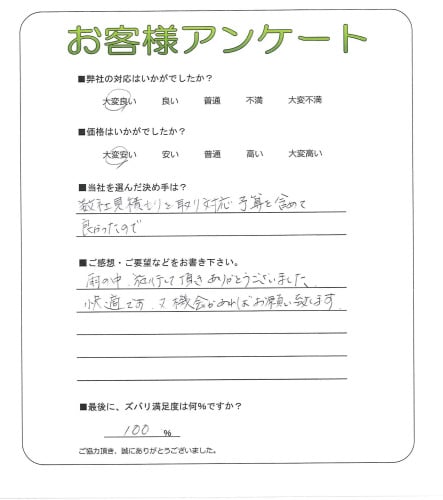 お客様アンケート
■弊社の対応はいかがでしたか？
大変良い 良い 普通 不満 大変不満
■価格はいかがでしたか？
大変安い 安い 普通 高い 大変高い
■当社を選んだ決め手は？
数社見積もりを取り対応 予算を含めて
良かったので
■ご感想・ご要望などをお書き下さい。
雨の中、施行して頂きありがとうございました、
快適です。又機会があればお願い致します
■最後に、ズバリ満足度は何％ですか？
100 %
ご協力頂き、誠にありがとうございました。